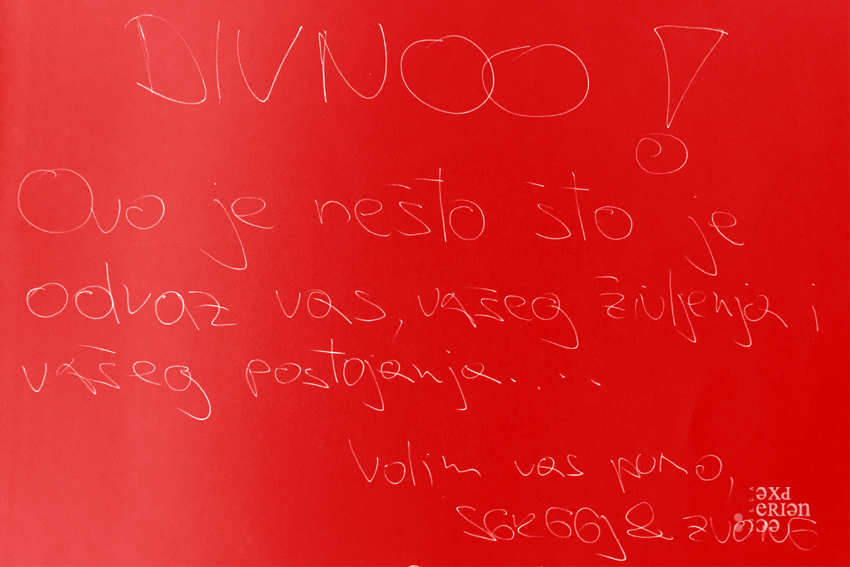 DIVNOO!
Ovo je nešto što je
odvaz vas, vašeg življenja i
vašeg postojanja....
Volim vas puno,
& ZVONE